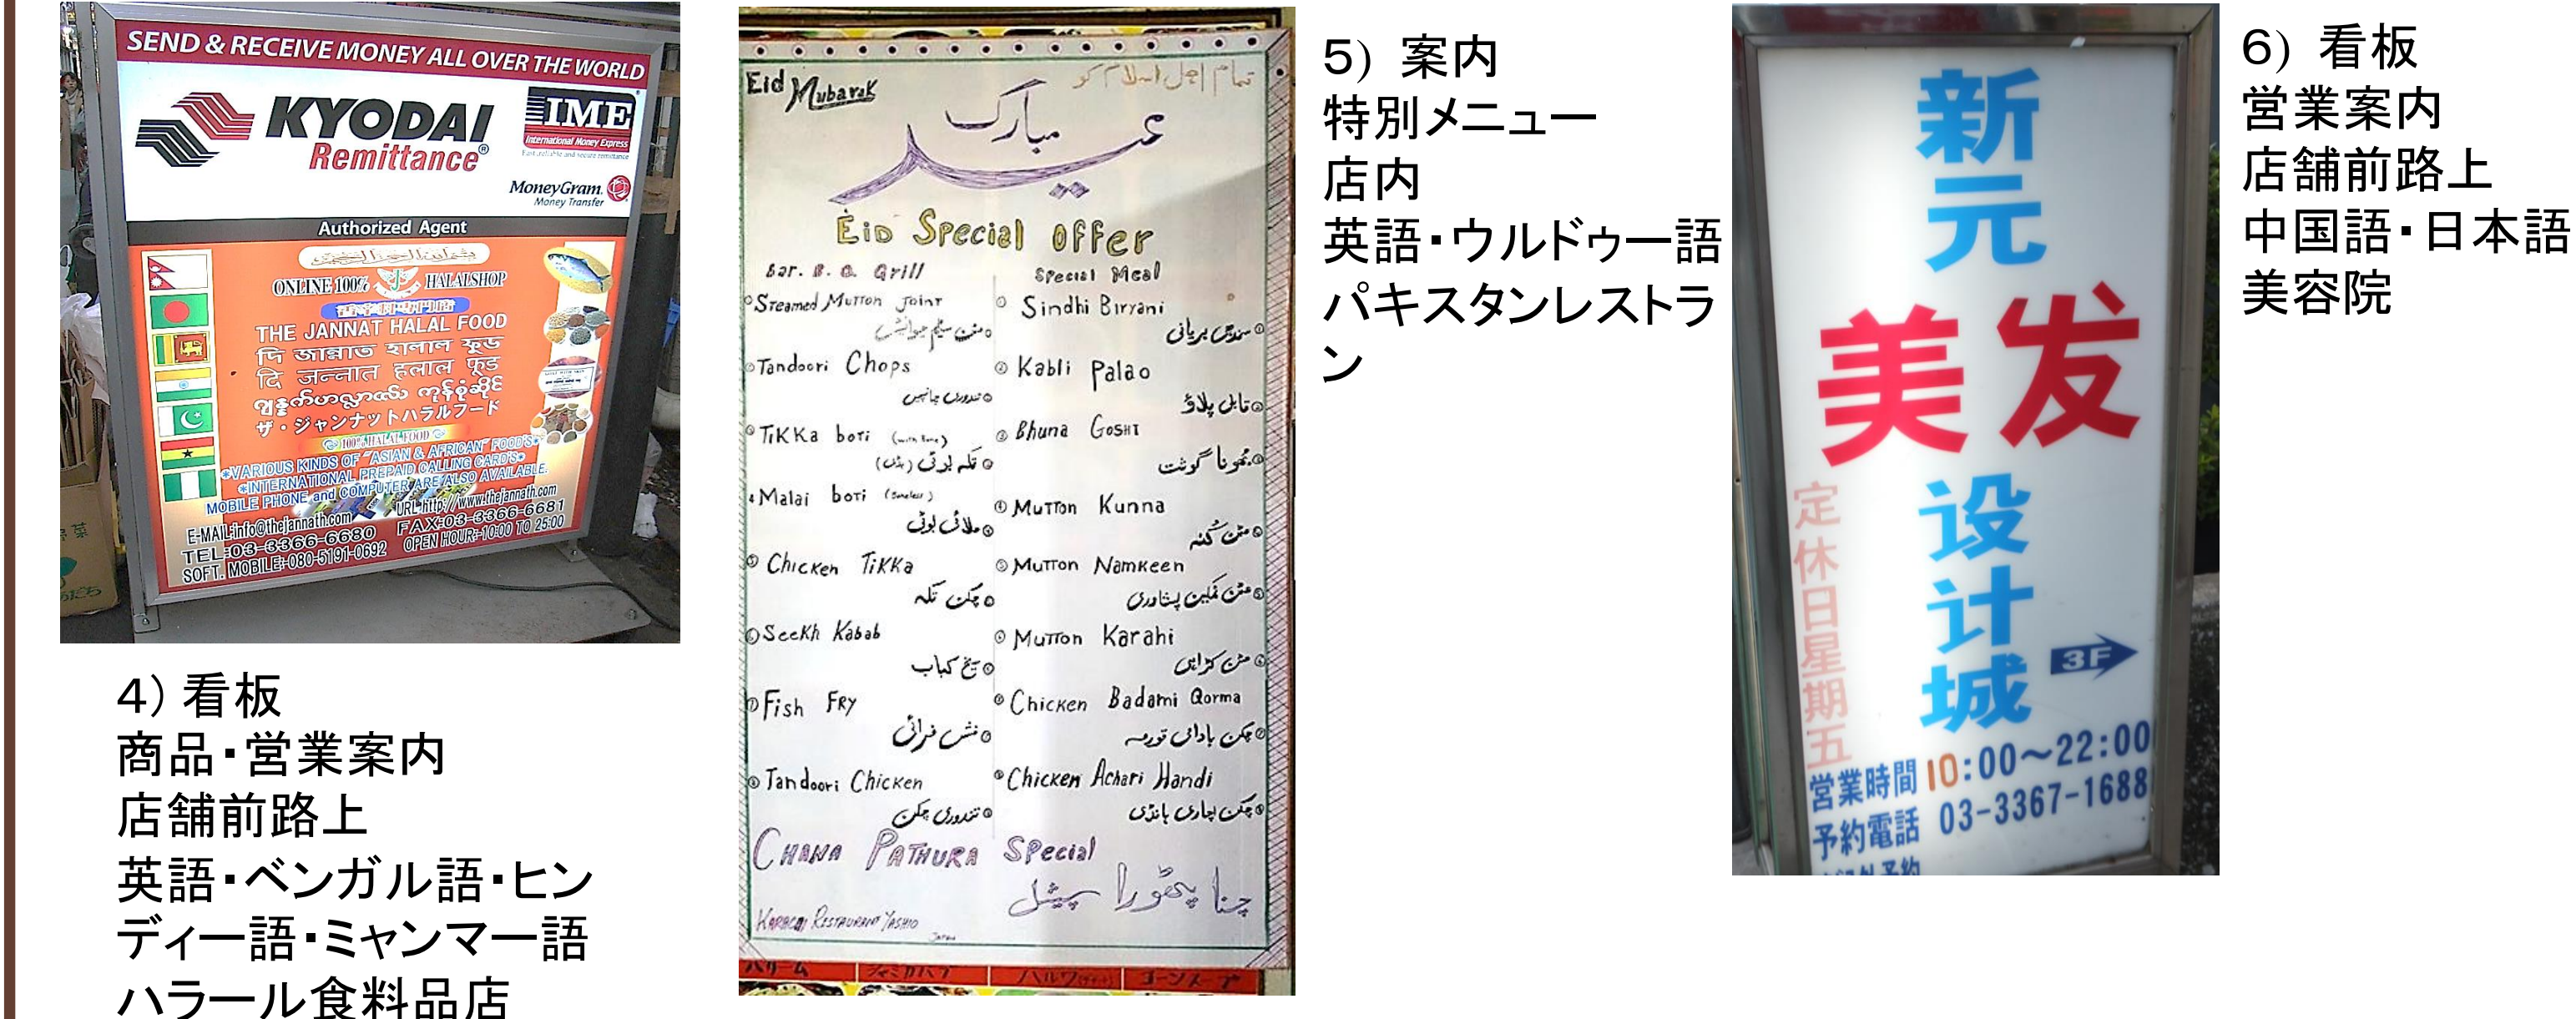 SEND & RECEIVE MONEY ALL OVER THE WORLD
KYODAI
Remittance®
IME
International Money Express
Fast, reliable and secure remittance
MoneyGram.
Money Transfer
Authorized Agent
ONLINE 100% HALALSHOP
THE JANNAT HALAL FOOD
দি জান্নাত হালাল ফুড
दि जन्नात हलाल फूड
ザ・ジャンナットハラルフード
100% HALAL FOOD
*VARIOUS KINDS OF "ASIAN & AFRICAN" FOOD'S*
*INTERNATIONAL PREPAID CALLING CARD'S*
MOBILE PHONE and COMPUTER ARE ALSO AVAILABLE.
URL:http://www.thejannath.com
E-MAIL:info@thejannath.com
TEL:03-3366-6680 FAX:03-3366-6681
SOFT. MOBILE:-080-5191-0692 OPEN HOUR:-10:00 TO 25:00
4) 看板
商品・営業案内
店舗前路上
英語・ベンガル語・ヒン
ディー語・ミャンマー語
ハラール食料品店
Eid Mubarak
تمام اہل اسلام کو
عید مبارک
Eid Special Offer
Bar. B. Q. Grill
Steamed Mutton Joint
Tandoori Chops
تندوری چانپیں
Tikka boti (with bone)
تکہ بوٹی (ہڈی)
Malai boti (Boneless)
ملائی بوٹی
Chicken Tikka
چکن تکہ
Seekh Kabab
سیخ کباب
Fish Fry
فش فرائی
Tandoori Chicken
تندوری چکن
Special Meal
Sindhi Biryani
سندھی بریانی
Kabli Palao
قابلی پلاؤ
Bhuna Gosht
بھونا گوشت
Mutton Kunna
مٹن کنہ
Mutton Namkeen
مٹن نمکین پشاوری
Mutton Karahi
مٹن کڑاہی
Chicken Badami Qorma
چکن بادامی قورمہ
Chicken Achari Handi
چکن اچاری ہانڈی
Chana Pathura Special
چنا پٹھورا سپیشل
Karachi Restaurant Yashio
Japan
5) 案内
特別メニュー
店内
英語・ウルドゥー語
パキスタンレストラ
ン
新元
美发
设计城
3F
定休日星期五
営業時間 10:00～22:00
予約電話 03-3367-1688
6) 看板
営業案内
店舗前路上
中国語・日本語
美容院